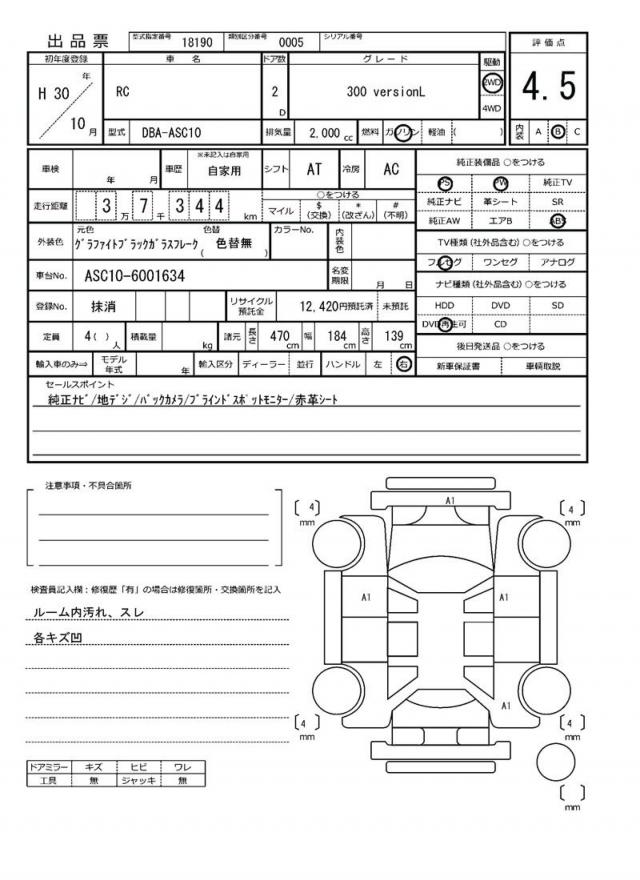 出品票 型式指定番号 18190 類別区分番号 0005 シリアル番号
初年度登録 車名 ドア数 グレード 駆動 評価点
H 30 年 10 月 RC 2 D 300 versionL 2WD 4WD 4.5
型式 DBA-ASC10 排気量 2,000 cc 燃料 ガソリン 軽油 ( ) 内装 A B C
車検 年 月 車歴 ※未記入は自家用 自家用 シフト AT 冷房 AC 純正装備品 ○をつける
PS PW 純正TV
走行距離 3 万 7 千 3 4 4 km ○をつける マイル $ (交換) * (改ざん) # (不明) 純正ナビ 革シート SR
純正AW エアB ABS
外装色 元色 グラファイトブラックガラスフレーク 色替 ( 色替無 ) カラーNo. 内装色 TV種類 (社外品含む) ○をつける
フルセグ ワンセグ アナログ
車台No. ASC10-6001634 名変期限 月 日 ナビ種類 (社外品含む) ○をつける
登録No. 抹消 リサイクル預託金 12,420円預託済 未預託 HDD DVD SD
DVD再生可 CD
定員 4 ( ) 人 積載量 kg 諸元 長さ 470 cm 幅 184 cm 高さ 139 cm 後日発送品 ○をつける
輸入車のみ⇒ モデル年式 年 輸入区分 ディーラー 並行 ハンドル 左 右 新車保証書 車輌取説
セールスポイント
純正ナビ/地デジ/バックカメラ/ブラインドスポットモニター/赤革シート
注意事項・不具合箇所
[ 4 ] mm A1 [ 4 ] mm
検査員記入欄：修復歴「有」の場合は修復箇所・交換箇所を記入
A1 A1
ルーム内汚れ、スレ
各キズ凹
A1
[ 4 ] mm [ 4 ] mm
ドアミラー キズ ヒビ ワレ
工具 無 ジャッキ 無
[ ] mm